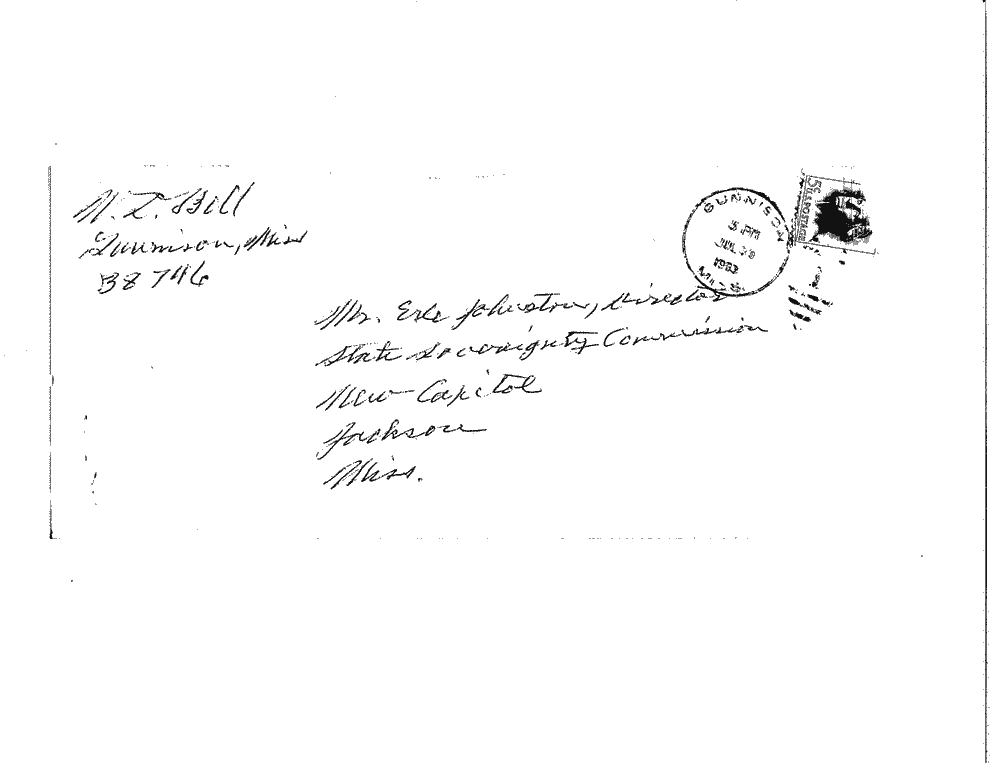 N. L. Bell
Gunnison, Miss
38746
GUNNISON
5 PM
JUL
1963
MISS
5¢
U.S. POSTAGE
Mr. Erle Johnston, Director
State Sovereignty Commission
New Capitol
Jackson
Miss.